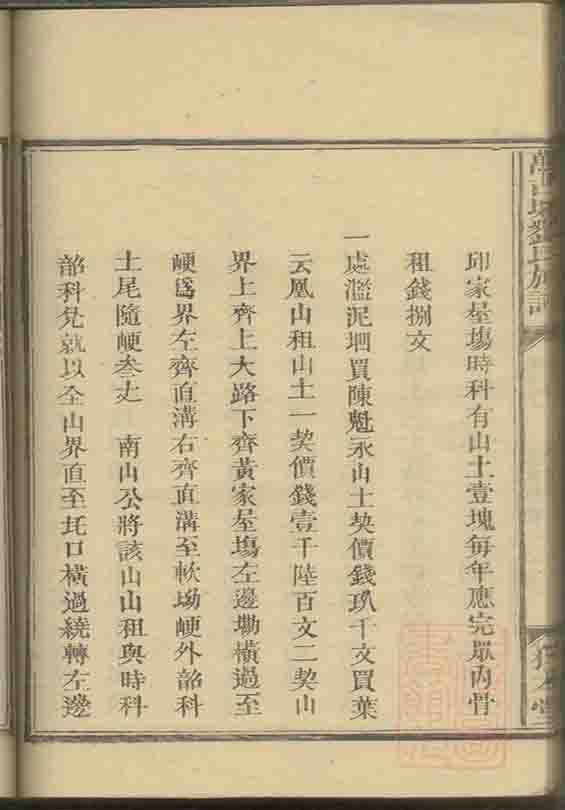 邱家屋塲時科有山土壹塊每年應完眾內骨
租錢捌文
一處濫泥坰買陳魁永山土契價錢玖千文買葉
云凰山租山土一契價錢壹千陸百文二契山
界上齊上大路下齊黃家屋塲左邊墈橫過至
峺爲界左齊直溝右齊直溝至軟坳峺外韶科
土尾隨峺叁丈　南山公將該山山租與時科
韶科兌就以全山界直至圫口橫過繞轉左邊